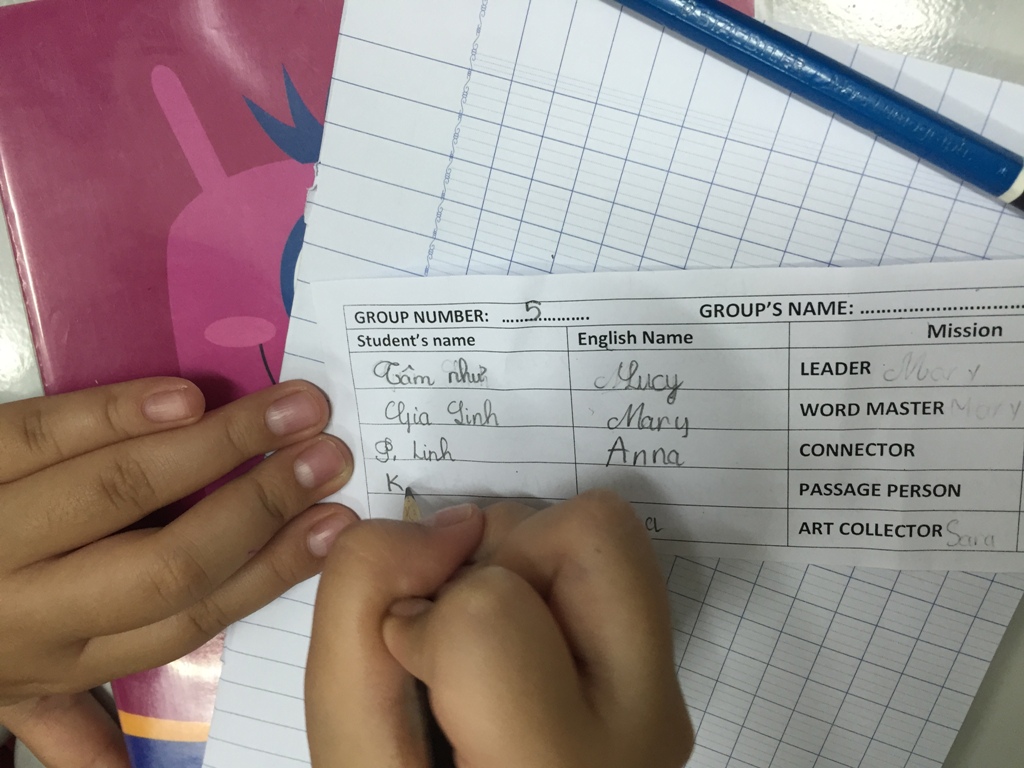 GROUP NUMBER: ......5........... GROUP'S NAME: ..............................
Student's name English Name Mission
Tâm như Lucy LEADER Mary
Gia Linh Mary WORD MASTER Mary
P. Linh Anna CONNECTOR
K PASSAGE PERSON
a ART COLLECTOR Sara